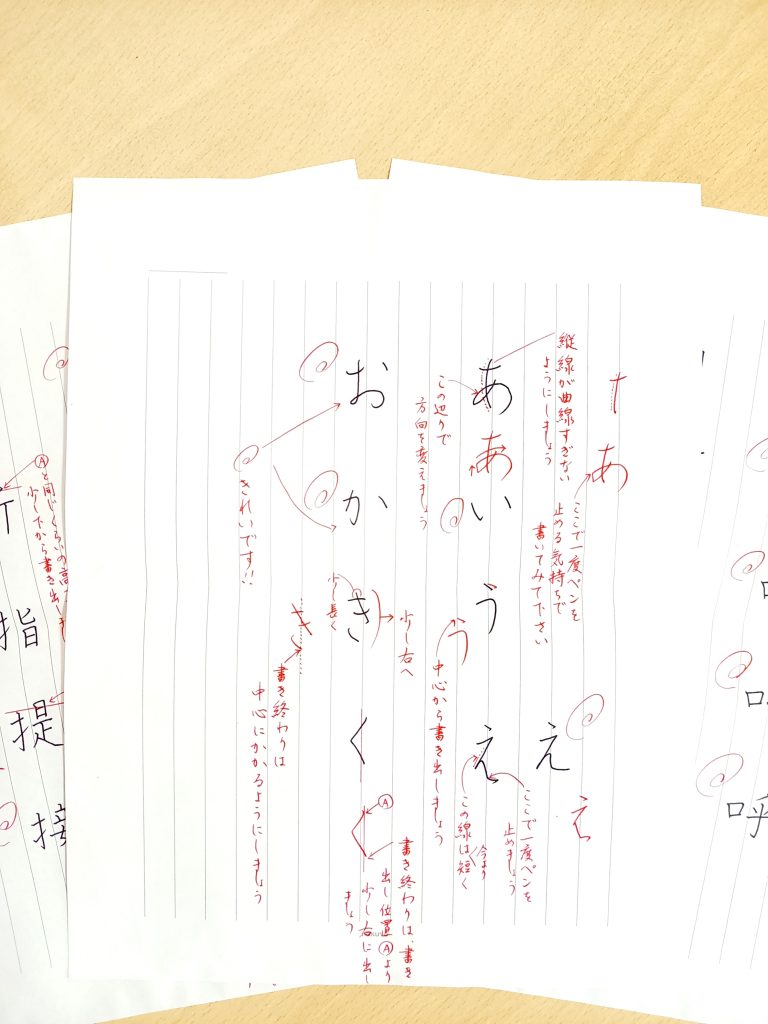 縦線が曲線すぎない
ようにしましょう
あ
ここで一度ペンを
止める気持ちで
書いてみて下さい
あ
あ
い
う
え
え
え
この辺りで
方向を変えましょう
う
中心から書き出しましょう
ここで一度ペンを
止めましょう
この線は今より短く
お
か
き
く
きれいです!!
少し長く
少し右へ
き
書き終わりは
中心にかかるようにしましょう
Ⓐ
書き終わりは、書き
出し位置Ⓐより
少し右に出し
ましょう
Ⓐと同じくらいの高
少し下から書き出しま
指
提
接
呼